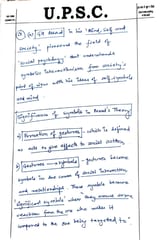 U.P.S.C.
GH Mead in his 'Mind, Self and
Society' pioneered the field of
'social psychology' that understands
symbolic interactionism from society's
point of view with his ideas of self, symbols
and mind.
Significance of symbols in Mead's Theory
Formation of gestures which is defined
as acts to give effects to social action.
Gestures symbols gestures become
symbols in the course of social interaction
and relationships. These symbols become
significant symbols when they arouse same
reaction from the one who makes it
compared to the one being targeted to